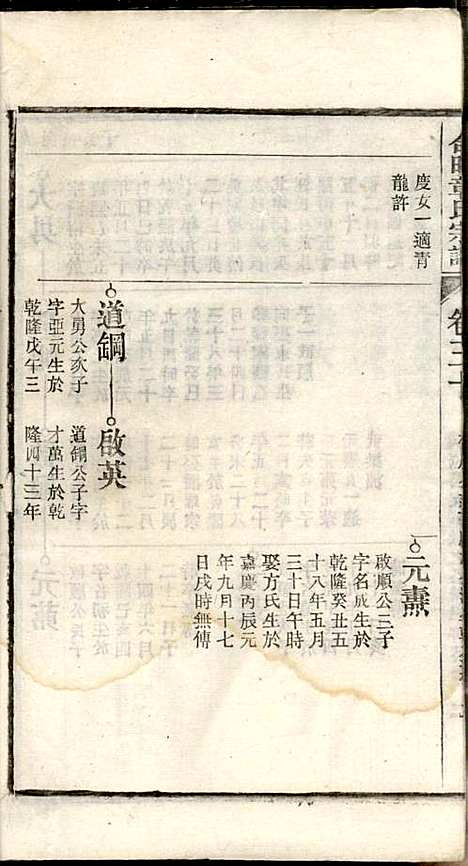 章氏宗譜
卷三十
度女一適青
龍許
元燾
啟順公三子
字名成生於
乾隆癸丑五
十八年五月
三十日午時
娶方氏生於
嘉慶丙辰元
年九月十七
日戌時無傳
道鋼
大勇公次子
字亞元生於
乾隆戊午三
啟英
道鋼公子字
才萬生於乾
隆四十三年